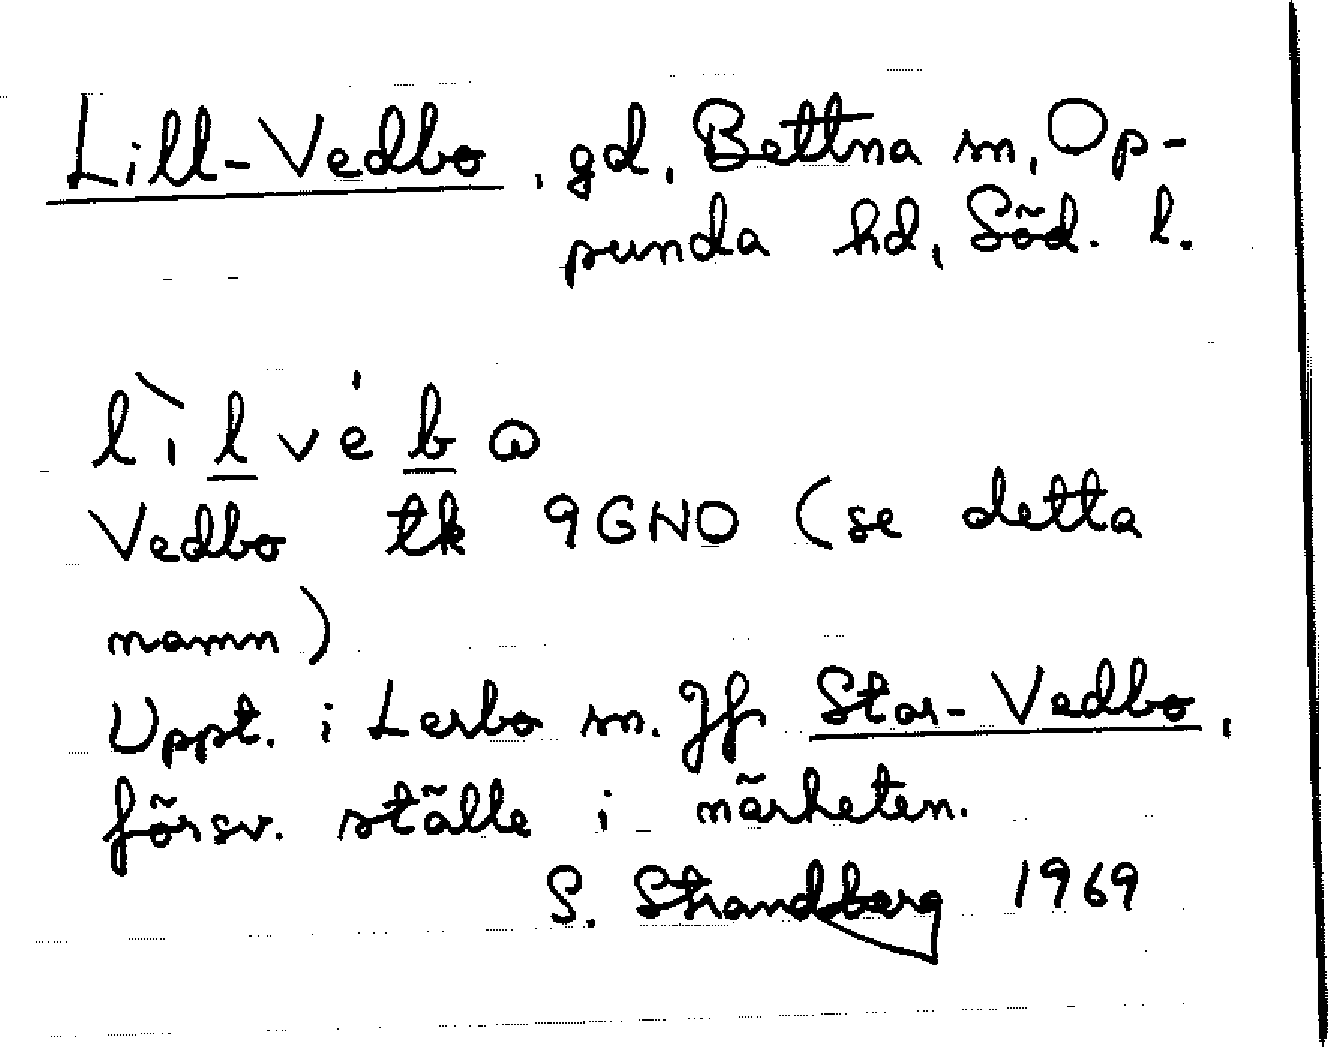 Lill-Vedbo, gd, Bettna sn, Op-
punda hd, Söd. l.
lì l vé b ω
Vedbo tk 9GNO (se detta
namn)
Uppt. i Lerbo sn. Jf Stor-Vedbo,
försv. ställe i närheten.
S. Strandberg 1969